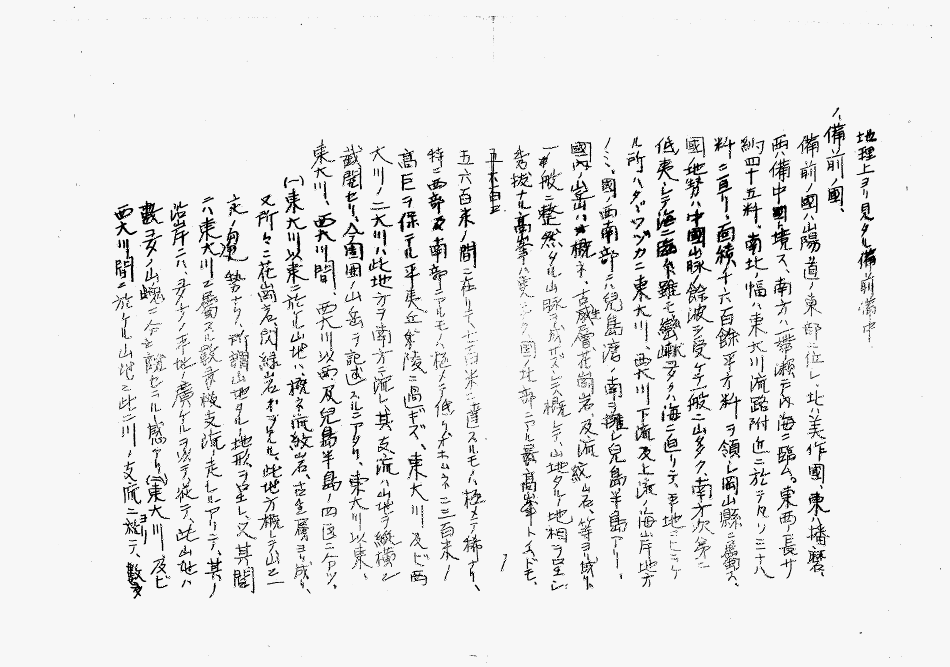 地理上ヨリ見タル備前備中
ハ、備前ノ國、
備前ノ國ハ山陽道ノ東部ニ位シ、北ハ美作國、東ハ播磨、
西ハ備中國ニ境ス、南方ハ一帶瀬戸内海ニ臨ム。東西ノ長サ
約四十五粁、南北ノ幅ハ東大川流路附近ニ於テカク三十八
粁ニ亘リ、面積千六百餘平方粁ヲ領シ岡山縣ニ屬ス、
國ノ地勢ハ中國山脈ノ餘波ヲ受ケテ一般ニ山多ク、南方次第ニ
低夷シテ海ニ臨ムト雖モ、巒嶽多クハ海ニ迫リテ、平地ニトシケ
ル所ハ ワヅカニ東大川、西大川下流及上流ノ海岸地方
ノミ、國ノ西南部ニハ兒島湾ノ南ヲ擁シ兒島半島アリ、
國内ノ山岳ハ概ネ、古成層花崗岩、及流紋岩、等ヨリ成リ
一般ニ整然タル山脈ヲ成サズシテ概シテ、山地タル地相ヲ呈シ
秀拔ナル高峯ハ ク國ノ北部ニアル最高峯トイヘドモ、
五六百米
五六百米ノ間ニ在リテ七百米ニ達スルモノハ極メテ稀ナリ、
特ニ西部及南部ニアルモノハ極メテ低クオホムネ二三百米ノ
高巨ヲ保テル平夷丘陵ニ過ギズ、東大川及ビ西
大川ノ二大川ハ此地方ヲ南方ニ流レ其支流ハ山地ヲ縱横ニ
截開セリ、今國囲ノ山岳ヲ記述スルニアタリ、東大川以東、
東大川、西大川間、西大川以西及兒島半島ノ四区ニ分ツ、
(一)東大川以東ニ於ケル山地ハ、概ネ流紋岩、古生層ヨリ成リ、
又所々ニ花崗岩、閃緑岩 此地方概シテ山
勢ナリ、所謂山地タル地形ヲ呈シ、又其間
ニハ東大川ニ屬スル數多ノ支流ノ走レルアリテ、其ノ
沿岸ニハ、多少ノ平地ノ廣ケルヲ以テ、従テ、此山地ハ
數多ノ山塊ニ分 セラル感アリ(二)東大川及ビ
西大川間ニ於ケル山地モ此二川ノ支流ニ於テ、數多